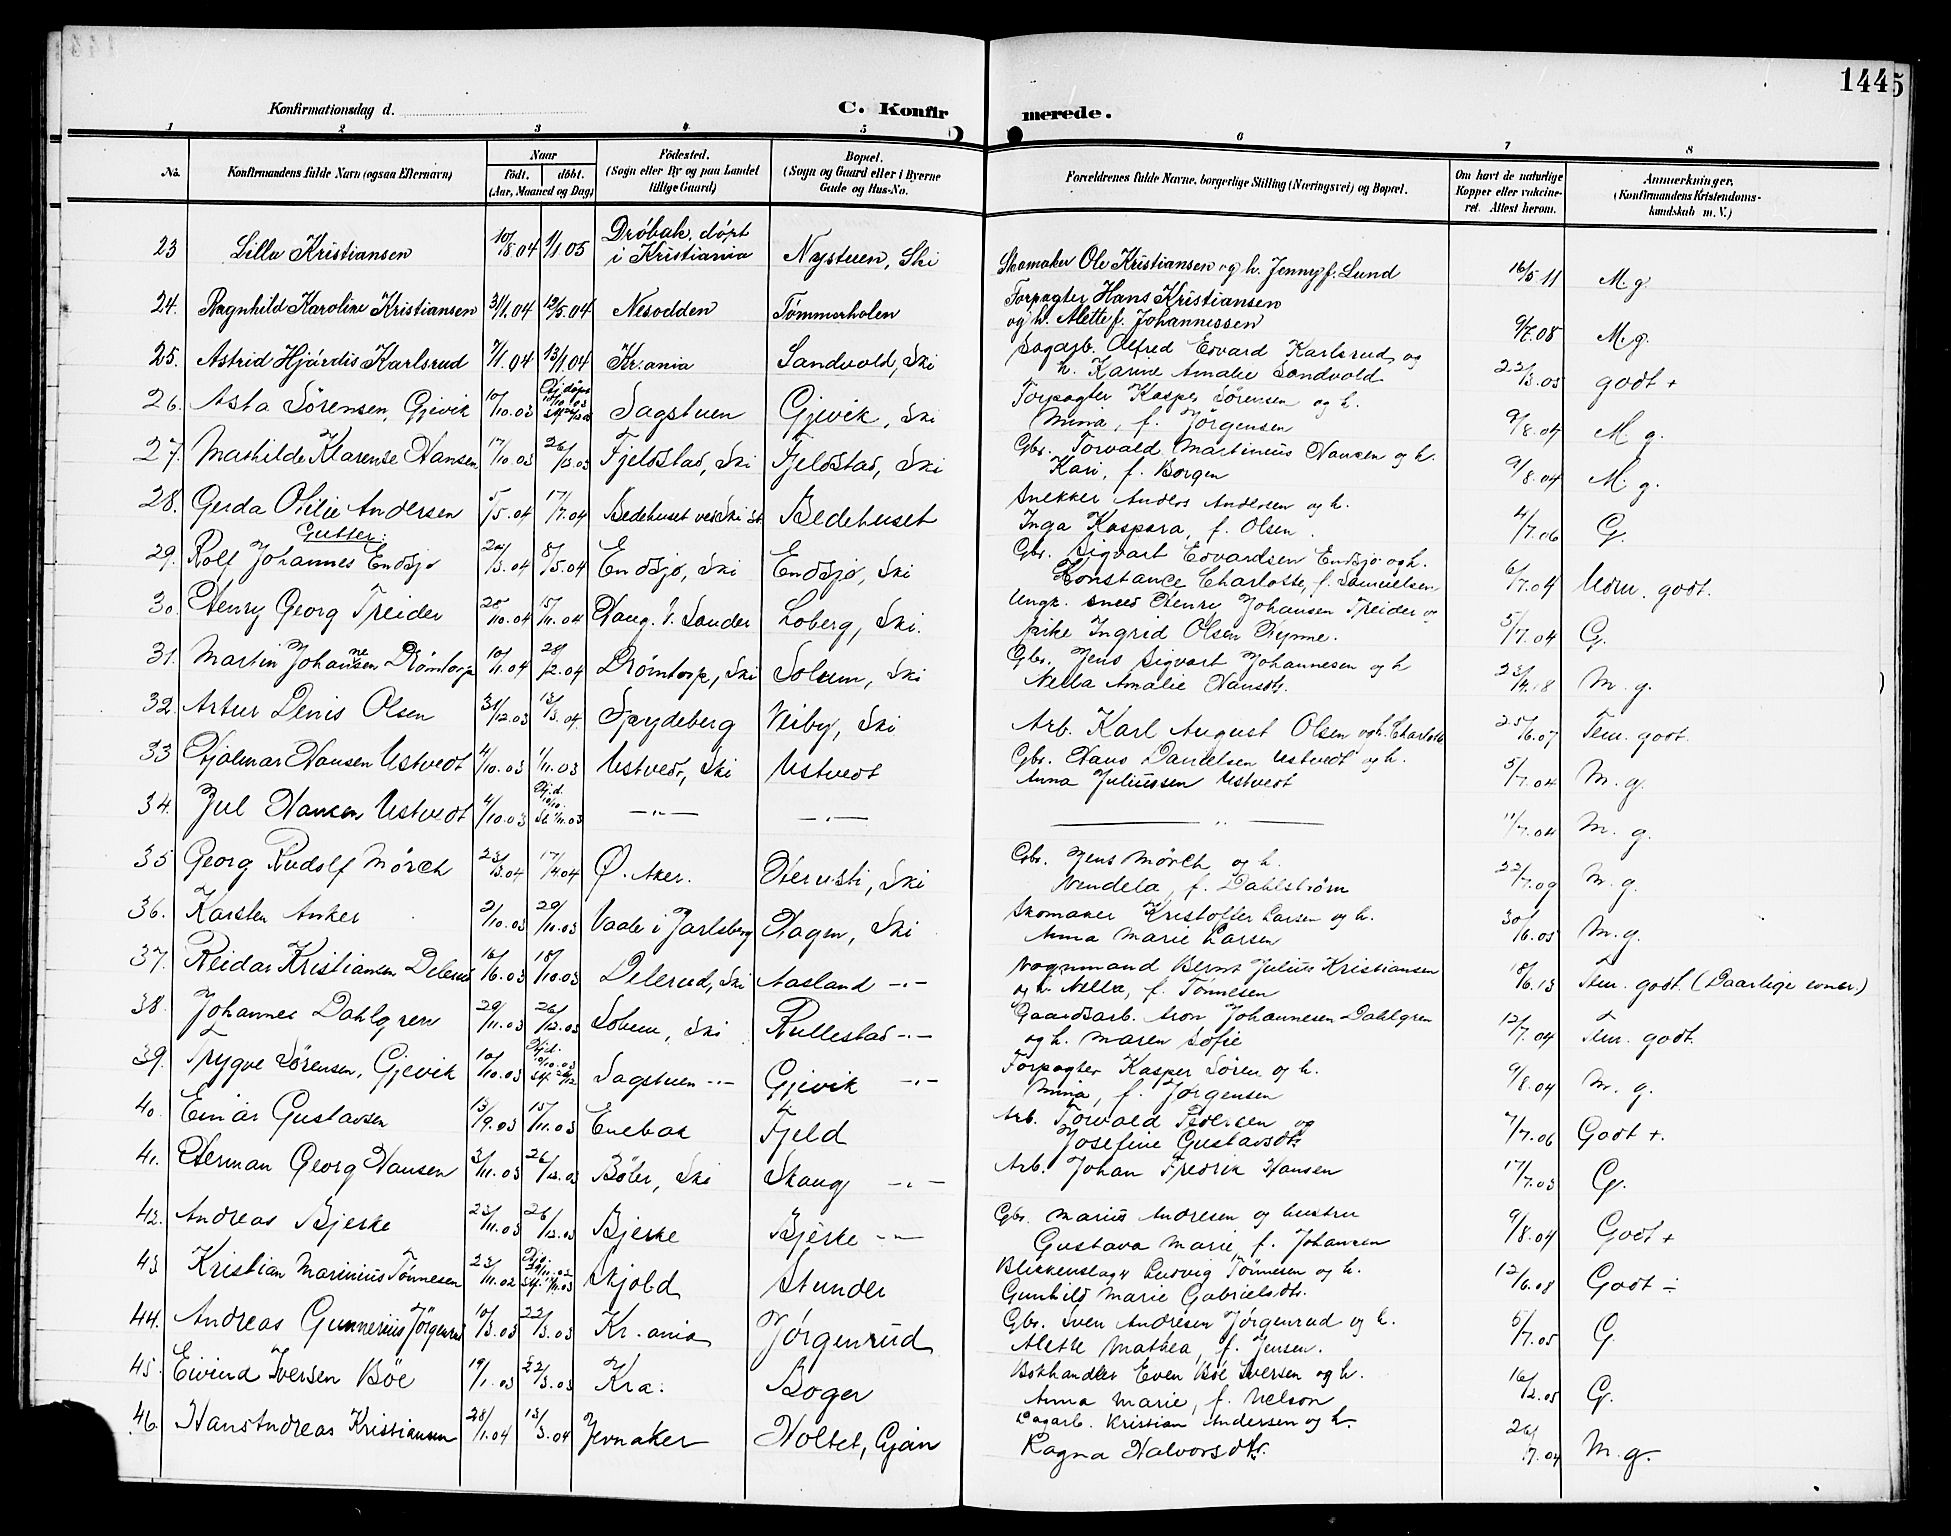 1445
Konfirmationsdag d.
C. Konfir merede.
1 2 3 4 5 6 7 8
No. Konfirmandens fulde Navn (ogsaa Efternavn) Naar født. døbt. (Aar, Maaned og Dag) Fødested. (Sogn eller By og paa Landet tillige Gaard) Bopæl. (Sogn og Gaard eller i Byerne Gade og Hus-No. Forældrenes fulde Navne, borgerlige Stilling (Næringsvei) og Bopæl. Om havt de naturlige Kopper eller vakcineret. Attest herom. Anmerkninger. (Konfirmandens Kristendomskundskab m. V.)
23 Lilla Kristiansen 10/8 04 1/1 05 Drøbak, døpt i Kristiania Nystuen, Ski Skomaker Ole Kristiansen og h. Jenny f. Lund 16/5 11 M. g
24. Ragnhild Karoline Kristiansen 3/1.04 12/5.04 Nesodden Tømmerholen Forpagter Hans Kristiansen og h. Alette f. Johannessen 9/7.08 M. g.
25. Astrid Hjørdis Karlsrud 7/1.04 13/1.04 Kr.ania Sandvold, Ski Sagarb. Alfred Edvard Karlsrud og h. Karine Amalie Sandvold 22/3.05 godt +
26. Asta Sørensen, Gjevik 10/10.03 Hj.døpt 10/10 03 Sagstuen Gjevik, Ski Forpagter Kasper Sørensen og h. Mina, f. Jørgensen 9/8.04 M g.
27. Mathilde Klarense Hansen 17/10.03 26/12.03 Fjeldstad, Ski Fjeldstad, Ski Gbr. Torvald Martinius Hansen og h. Kari, f. Borgen 9/8.04 M. g.
28. Gerda Otilie Andersen 5/5.04 17/7.04 Bedehuset ved Ski st. Bedehuset Snekker Anders Andersen og h. Inga Kaspara, f. Olsen. 4/7.06 G.
Gutter:
29. Rolf Johannes Endsjø 20/3.04 8/5.04 Endsjø, Ski Endsjø, Ski Gbr. Sigvart Edvardsen Endsjø og h. Konstance Charlotte, f. Samuelsen 6/7.04 Udm. godt.
30. Henry Georg Treider 28/10.04 15/11.04 Haug. V. Sander Loberg, Ski. Ungk. sned Henry Johansen Treider og pike Ingrid Olsen Rynne. 5/7.04 G.
31. Martin Johannesen Drömtorp 10/11.04 28/12.04 Drömtorp, Ski Solum, Ski Gbr. Jens Sigvart Johannesen og h Nella Amalie Hansdt. 23/4.18 M. g.
32. Artur Denis Olsen 31/12.03 13/3.04. Spydeberg Vesby, Ski Arb. Karl August Olsen og h. Charlotte 25/6.07 Tem. godt.
33 Hjalmar Hansen Ustvedt 4/10.03 1/11.03 Ustvedt, Ski Ustvedt Gbr. Hans Danielsen Ustvedt og h. Anna Juliussen Ustvedt 5/7.04 M. g.
34. Jul Hansen Ustvedt 4/10.03 Hj.d. 10/10. St. 1/11.03 —„— —„— —„— 11/7.04 M. g.
35 Georg Rudolf Mørch 23/3.04 17/4.04 Ø. Aker. Herusti, Ski Gbr. Jens Mørch og h. Vendela, f. Dahlstrøm 22/7.09 M. g.
36. Karsten Anker 2/10.03 29/10.03 Vaale i Jarlsberg Hagen, Ski Skomaker Kristoffer Larsen og h. Anna Marie Larsen 30/6.05 M. g.
37. Reidar Kristiansen Delerud 16/6.03 18/10.03 Delerud, Ski Aasland -„- Vognmand Bernt Julius Kristiansen og h. Nella, f. Tønnesen 18/6.13 Tem. godt. (Daarlige evner.)
38. Johannes Dahlgren 29/11.03 26/12.03 Solum, Ski Rullestad -„- Gaardsarb. Aron Johannesen Dahlgren og h. Maren Sofie 12/7.04 Tem. godt.
39. Trygve Sørensen, Gjevik 10/10.03 Hj.d. 10/10.03 Sagstuen -„- Gjevik -„- Forpagter Kasper Søren og h. Mina, f. Jørgensen 9/8.04 M. g.
40. Einar Gustavsen 13/9.03 15/11.03 Enebak Fjeld Arb. Torvald Pedersen og Josefine Gustavsdt. 7/7.06 Godt +.
41. Herman Georg Hansen 3/11.03 26/12.03 Bøler, Ski Skaug -„- Arb. Johan Fredrik Hansen 17/7.03 G.
42. Andreas Bjerke 23/11.03 26/12.03 Bjerke Bjerke -„- Gbr. Marius Andresen og hustru Gustava Marie, f. Johansen 9/8.04 Godt +
43 Kristian Marinius Tønnesen 23/11.02 Skjold Stunder Blikkenslager Ludvig Tønnesen og h. Gunhild Marie Gabrielsdt. 12/6.08 Godt ÷
44. Andreas Gunnerius Jørgenrud 10/3.03 22/3.03 Kr.ania Jørgenrud Gbr. Sven Andresen Jørgenrud og h. Alette Mathea, f. Jensen. 5/7.05 G.
45. Eivind Iversen Bøe 19/1.03 22/3.03 Kra: Boger Bokhandler Even Bøe Iversen og h. Anna Marie, f. Nelson 16/2.05 G.
46. Hans Andreas Kristiansen 28/1.04 13/3.04 Jevnaker Holtet, Gjan Sagarb. Kristian Andersen og h. Ragna Halvorsdt. 26/7.04 M. g.